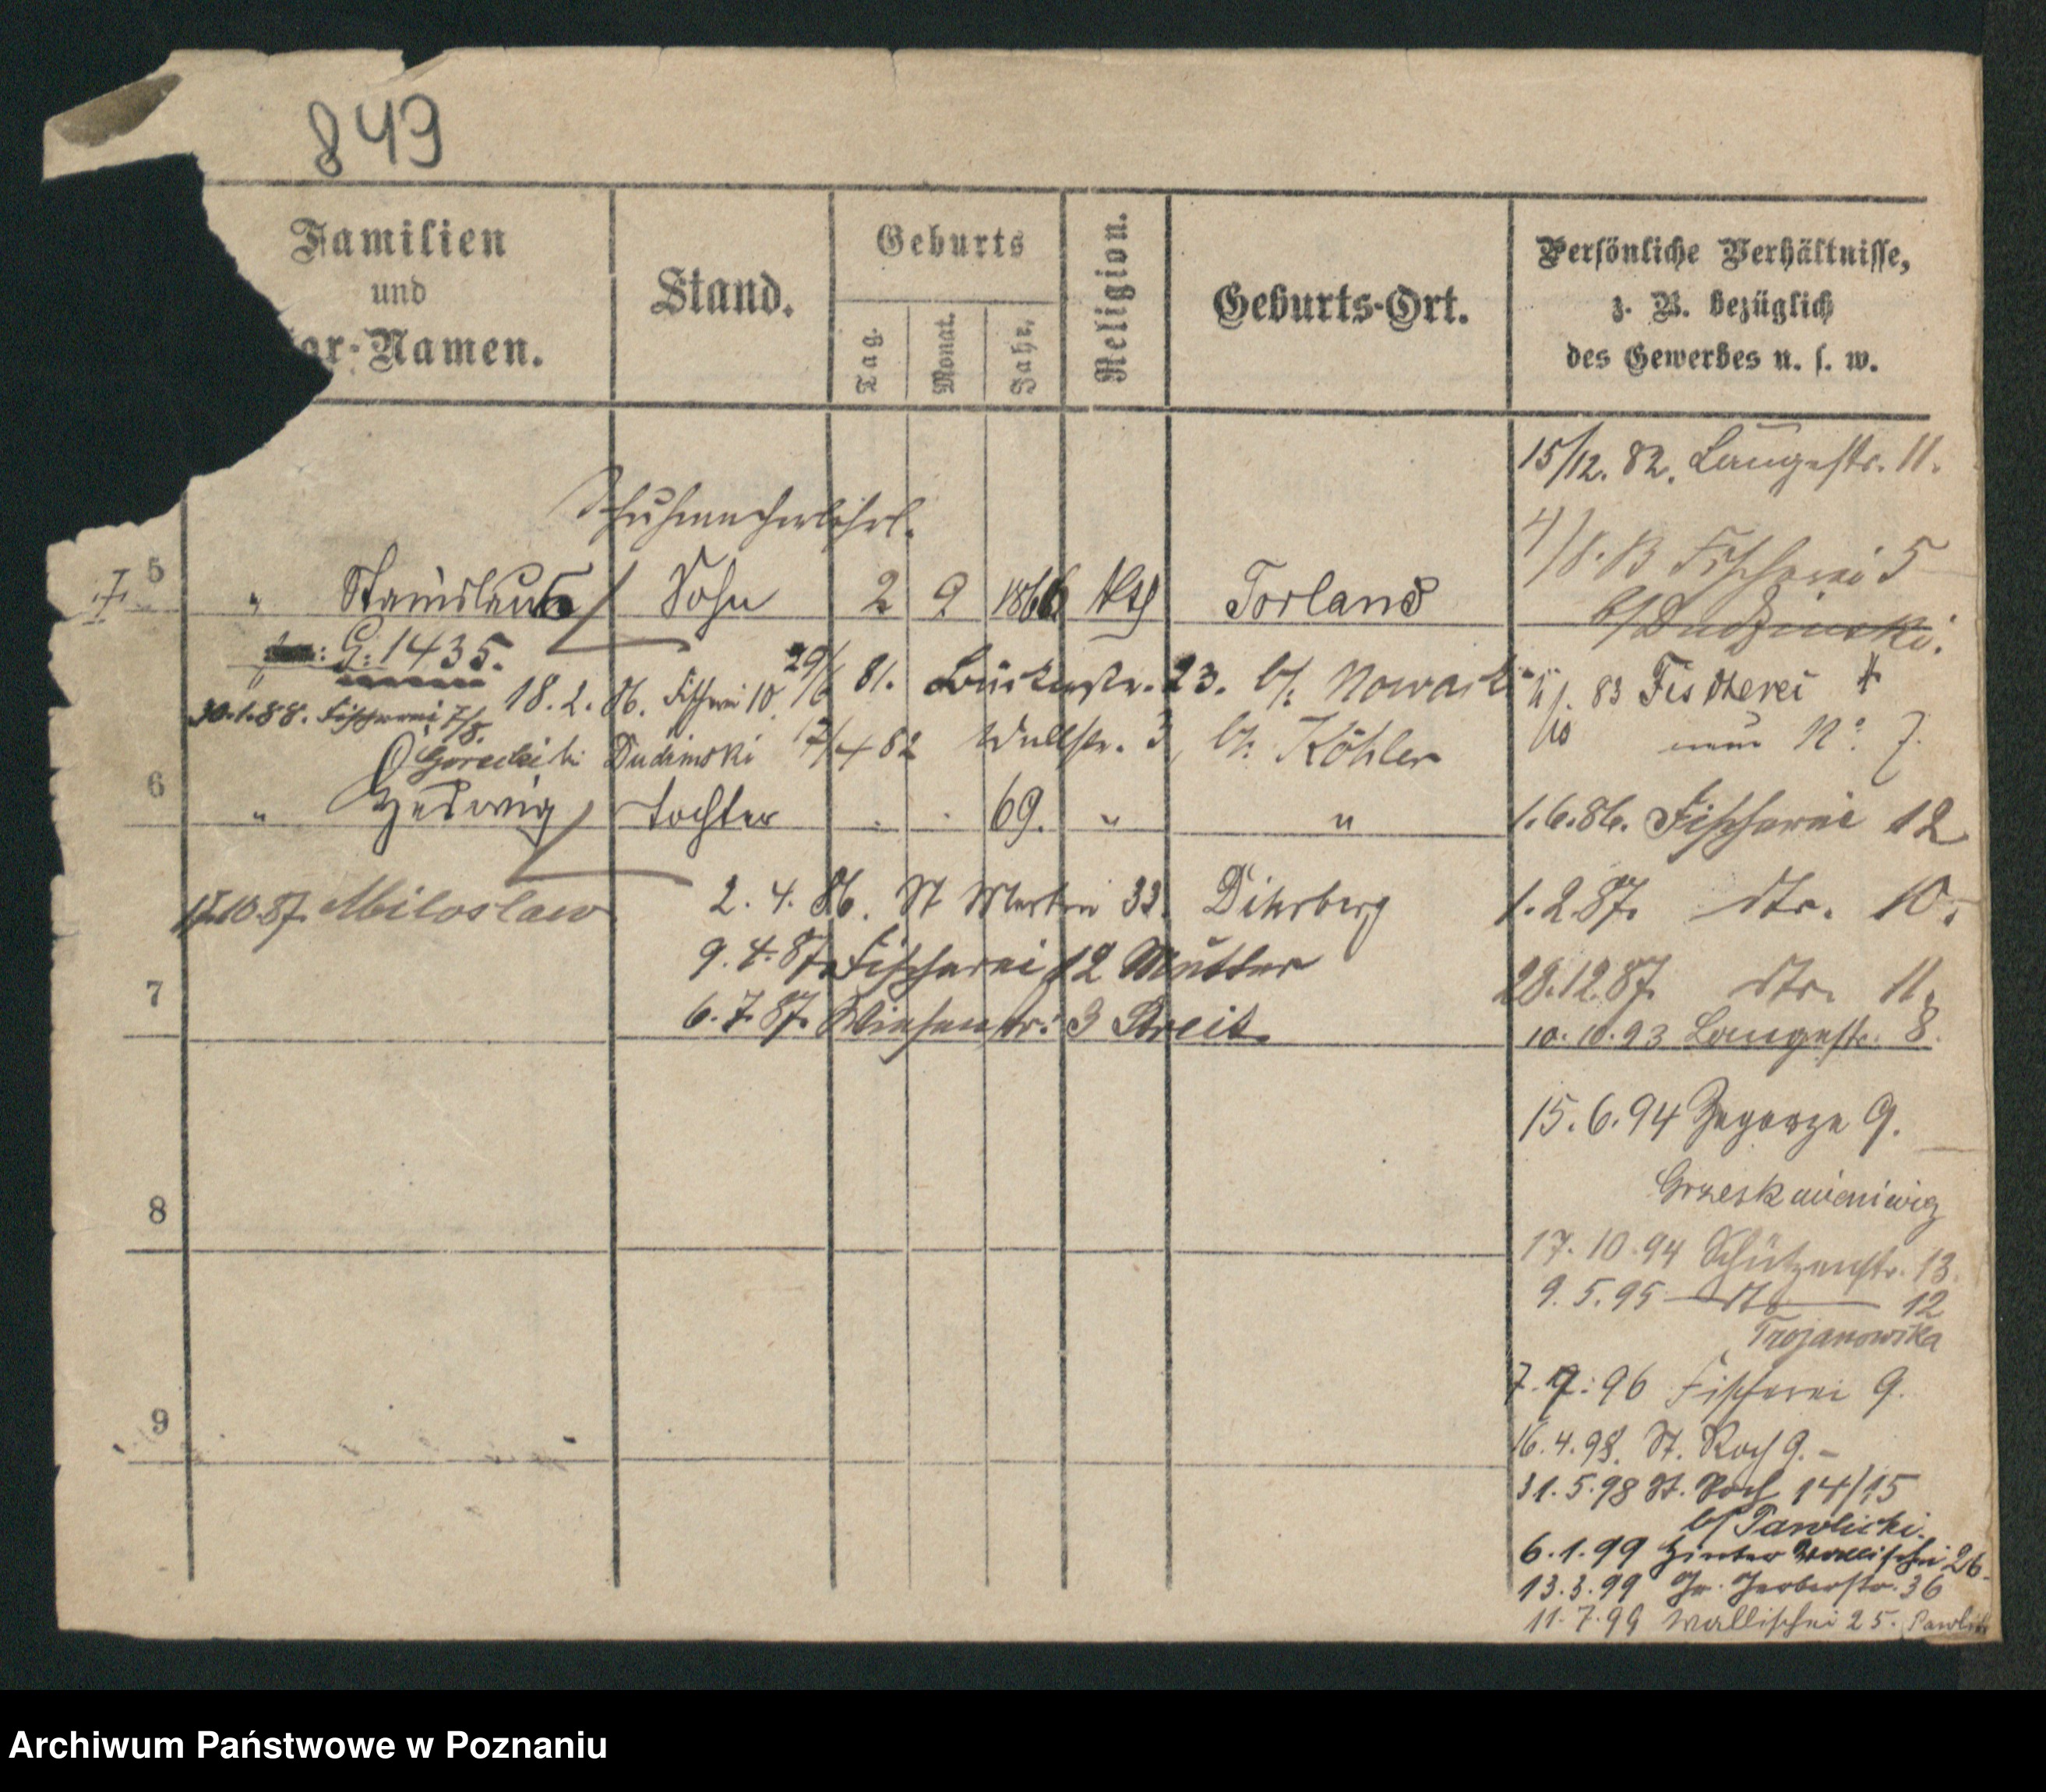 849
Familien
und
or-Namen.
Stand.
Geburts
Tag.
Monat.
Jahr.
Religion.
Geburts-Ort.
Persönliche Verhältnisse,
z. B. bezüglich
des Gewerbes u. s. w.
15/12. 82. Langestr. 11.
Schuhmacherlehrl.
4/8. 83 Fischerei 5
b/ Dudzinski.
5 " Stanislaus Sohn 2 9 1866 kth Torland
G: 1435.
29/6 81. Büttelstr. 23. b/. Nowack
83 Fischerei 4
18. 2. 86. Fischerei 10.
30.1.88. Fischerei 7/8.
Dudzinski 17/4 82 Wallstr. 3, b/. Köhler
nun No. 7.
6 " Hedwig Tochter . . 69. " "
1.6.86. Fischerei 12
17.10.87. Miloslaw
2. 4. 86. St Martin 33. Dihrberg
1.2.87. dto. 10.
9. 4. 87. Fischerei 12 Mutter
28.12.87. dto. 11.
7
6. 7. 87. Wiesenstr. 3 Streit
10. 10. 93 Langestr. 8.
15. 6. 94 Zagorze 9.
Grzeskowiewicz
8
17. 10. 94 Schützenstr. 13.
9. 5. 95 dto 12
Trojanowska
7. 7. 96 Fischerei 9.
9
16. 4. 98. St. Roch 9. –
31. 5. 98 St. Roch 14/15
b/ Pawlicki.
6. 1. 99 Hinter Wallischei 26.
13. 3. 99 Gr. Gerberstr. 36
11. 7. 99 Wallischei 25. Pawlicki
Archiwum Państwowe w Poznaniu